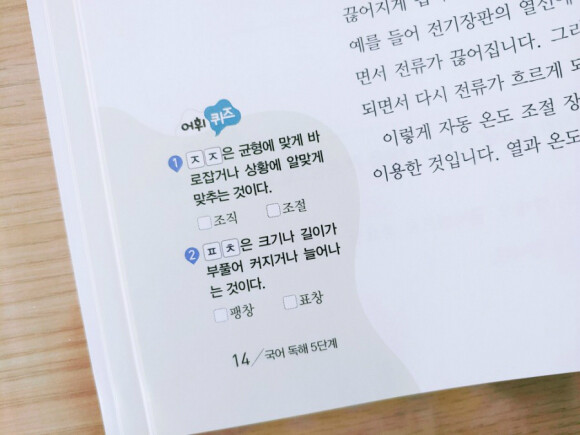 끊어지게
예를 들어 전기장판의 열선에
면서 전류가 끊어집니다. 그러
되면서 다시 전류가 흐르게 되
이렇게 자동 온도 조절 장
이용한 것입니다. 열과 온도
어휘 퀴즈
1 ㅈㅈ은 균형에 맞게 바
로잡거나 상황에 알맞게
맞추는 것이다.
조직 조절
2 ㅍㅊ은 크기나 길이가
부풀어 커지거나 늘어나
는 것이다.
팽창 표창
14 / 국어 독해 5단계